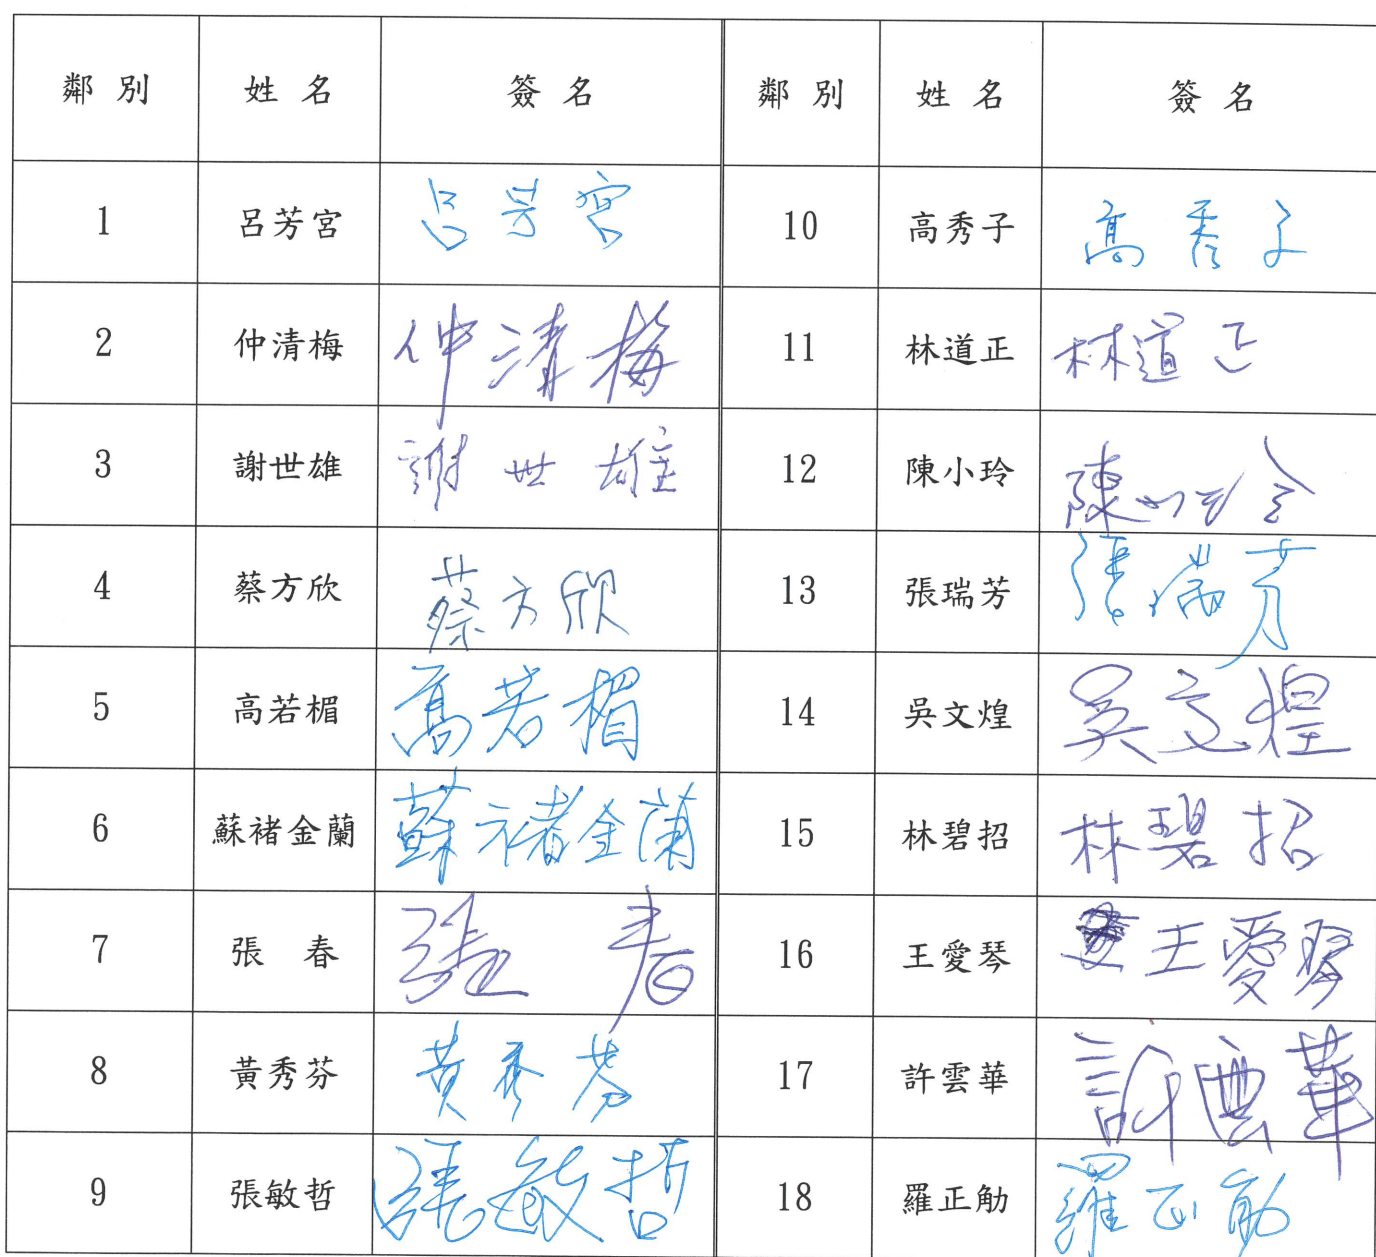 鄰別 姓名 簽名 鄰別 姓名 簽名
1 呂芳宮 呂芳宮 10 高秀子 高秀子
2 仲清梅 仲清梅 11 林道正 林道正
3 謝世雄 謝世雄 12 陳小玲 陳小玲
4 蔡方欣 蔡方欣 13 張瑞芳 張瑞芳
5 高若楣 高若楣 14 吳文煌 吳文煌
6 蘇褚金蘭 蘇褚金蘭 15 林碧招 林碧招
7 張春 張春 16 王愛琴 王愛琴
8 黃秀芬 黃秀芬 17 許雲華 許雲華
9 張敏哲 張敏哲 18 羅正勈 羅正勈